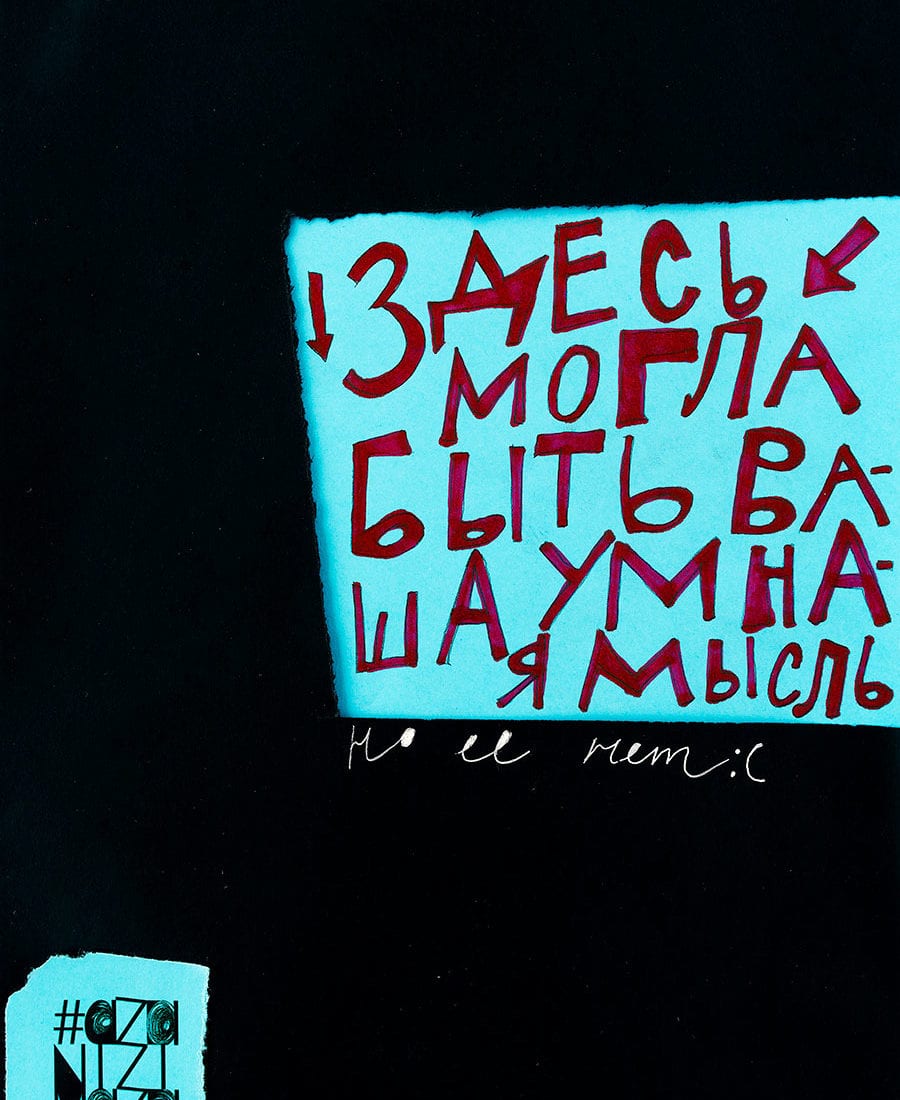 ЗДЕСЬ
МОГЛА
БЫТЬ ВА-
ША УМНА-
Я МЫСЛЬ
но ее нет :(
#aza
NIZI